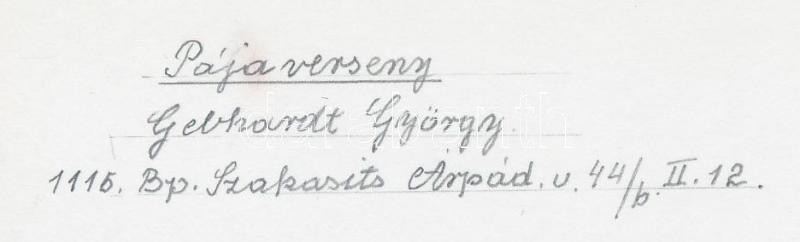 Pája verseny
Gebhardt György
1115. Bp. Szakasits Árpád. u. 44/b. II. 12.